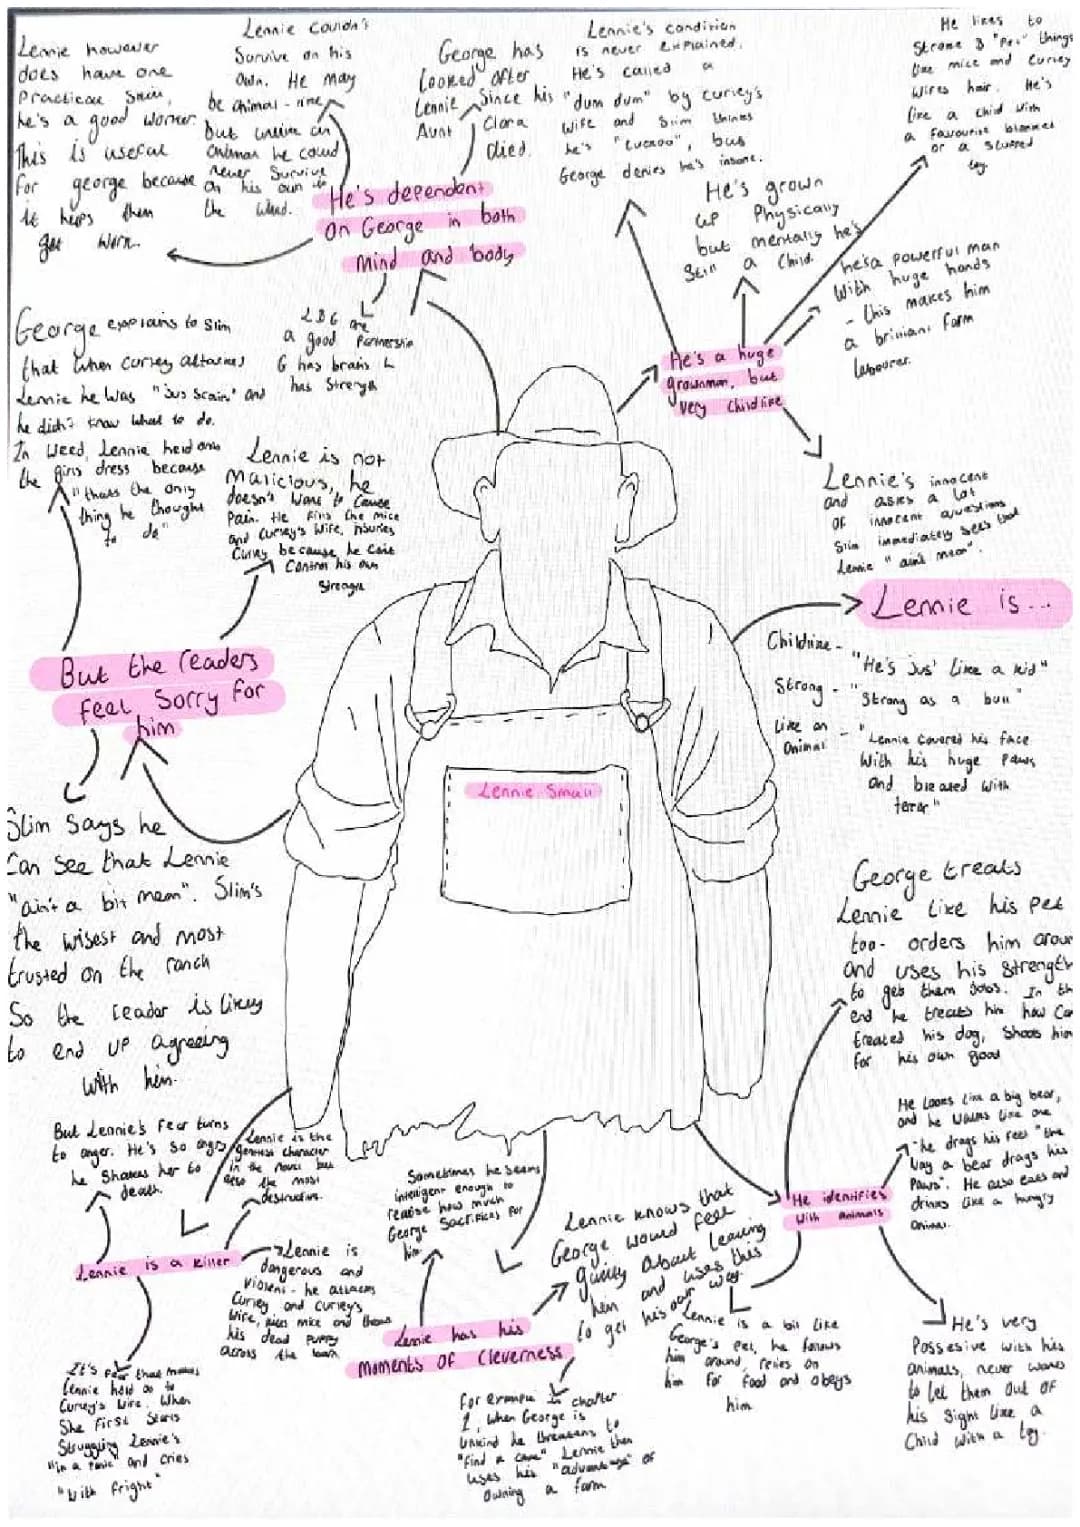 Lennie however
does have one
Practical Skill,
he's a good worker.
This is useful
for george because
it helps them
get work.
Lennie couldn't
Survive on his
own. He may
be animal-like,
but unlike an
animal he could
never Survive
on his own in
the wild.
George has
looked after
Lennie Since his
Aunt Clara
died.
Lennie's condition
is never explained.
He's called a
"dum dum" by curley's
wife and Slim thinks
he's "cuckoo", but
George denies he's insane.
He likes to
Stroke & "Pet" things
like mice and Curley
wifes hair. He's
like a child with
a favourite blanket
or a stuffed
toy.
He's dependent
on George in both
Mind and body
L & G are
a good Partnership
G has brains L
has Strength
He's grown
up Physically
but mentally he's
Still a Child.
he's a powerful man
With huge hands
- this makes him
a brilliant farm
labourer.
He's a huge
grownman, but
very Childlike
Lennie's innocent
and asks a lot
of innocent questions
Slim immediately sees that
Lennie "ain't mean".
George explains to Slim
that when curley attacked
Lennie he was "jus scair'" and
he didn't know what to do.
In Weed, Lennie held onto
the girls dress because
"thats the only
thing he thought
to do"
Lennie is not
Malicious, he
doesn't want to Cause
Pain. He kills the mice
and Curley's wife, injuries
Curley because he cant
Control his own
Strength
But the readers
feel Sorry for
him
Lennie is...
Childlike - "He's jus' like a kid"
Strong - "Strong as a bull"
Like an
Animal - "Lennie Covered his face
With his huge Paws
and bleated with
terror"
Lennie Small
Slim Says he
Can see that Lennie
"ain't a bit mean". Slim's
the wisest and most
trusted on the ranch
So the reader is likely
to end up agreeing
with him.
George treats
Lennie like his pet
too- orders him aroun
and uses his strength
to get them Jobs. In th
end he treats him how Car
treated his dog, Shoots him
for his own good
But Lennie's Fear turns
to anger. He's So angry
he Shakes her to
death.
Lennie is the
gentlest character
in the novel but
also the most
destructive.
Lennie is a killer
Lennie is
dangerous and
violent- he attacks
Curley and Curley's
Wife, kills mice and throws
his dead puppy
across the barn
It's fear that makes
Lennie hold on to
Curley's wife. When
She First Starts
Struggling Lennie's
"in a panic" and cries
"With fright"
Sometimes he seems
intelligent enough to
realise how much
George Sacrifices for
him.
Lennie has his
Moments of Cleverness
Lennie knows that
George would feel
guilty about leaving
him and uses this
to get his own way.
For example in chapter
1, when George is
unkind he threatens to
"find a cave" Lennie then
uses his "advantage" of
owning a farm
He identifies
with animals
He looks like a big bear,
and he walks like one
"he drags his feet "the
way a bear drags his
Paws". He also eats and
drinks like a hungry
animal.
Lennie is a bit like
George's pet, he follows
him around, relies on
him for food and obeys
him
He's very
Possesive with his
animals, never wants
to let them out of
his sight like a
Child with a toy.